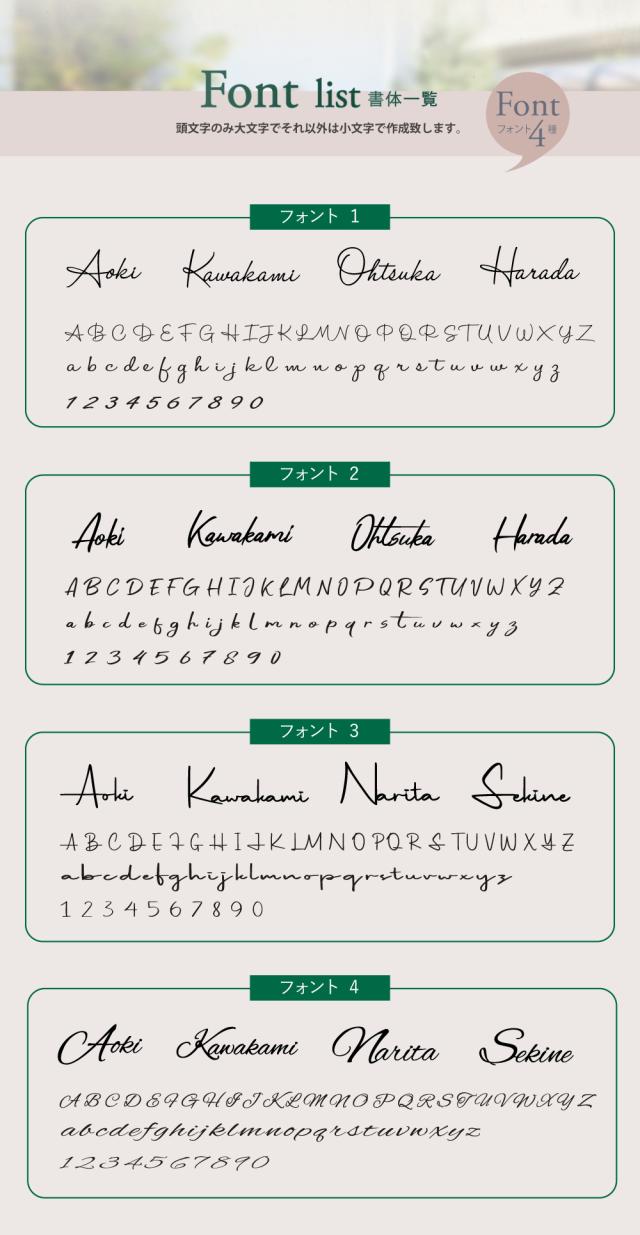 Font list 書体一覧
頭文字のみ大文字でそれ以外は小文字で作成致します。
Font
フォント4種
フォント 1
Aoki Kawakami Ohtsuka Harada
A B C D E F G H I J K L M N O P Q R S T U V W X Y Z
a b c d e f g h i j k l m n o p q r s t u v w x y z
1 2 3 4 5 6 7 8 9 0
フォント 2
Aoki Kawakami Ohtsuka Harada
A B C D E F G H I J K L M N O P Q R S T U V W X Y Z
a b c d e f g h i j k l m n o p q r s t u v w x y z
1 2 3 4 5 6 7 8 9 0
フォント 3
Aoki Kawakami Narita Sekine
A B C D E F G H I J K L M N O P Q R S T U V W X Y Z
abcdefghijklmnopqrstuvwxyz
1 2 3 4 5 6 7 8 9 0
フォント 4
Aoki Kawakami Narita Sekine
A B C D E F G H I J K L M N O P Q R S T U V W X Y Z
abcdefghijklmnopqrstuvwxyz
1234567890